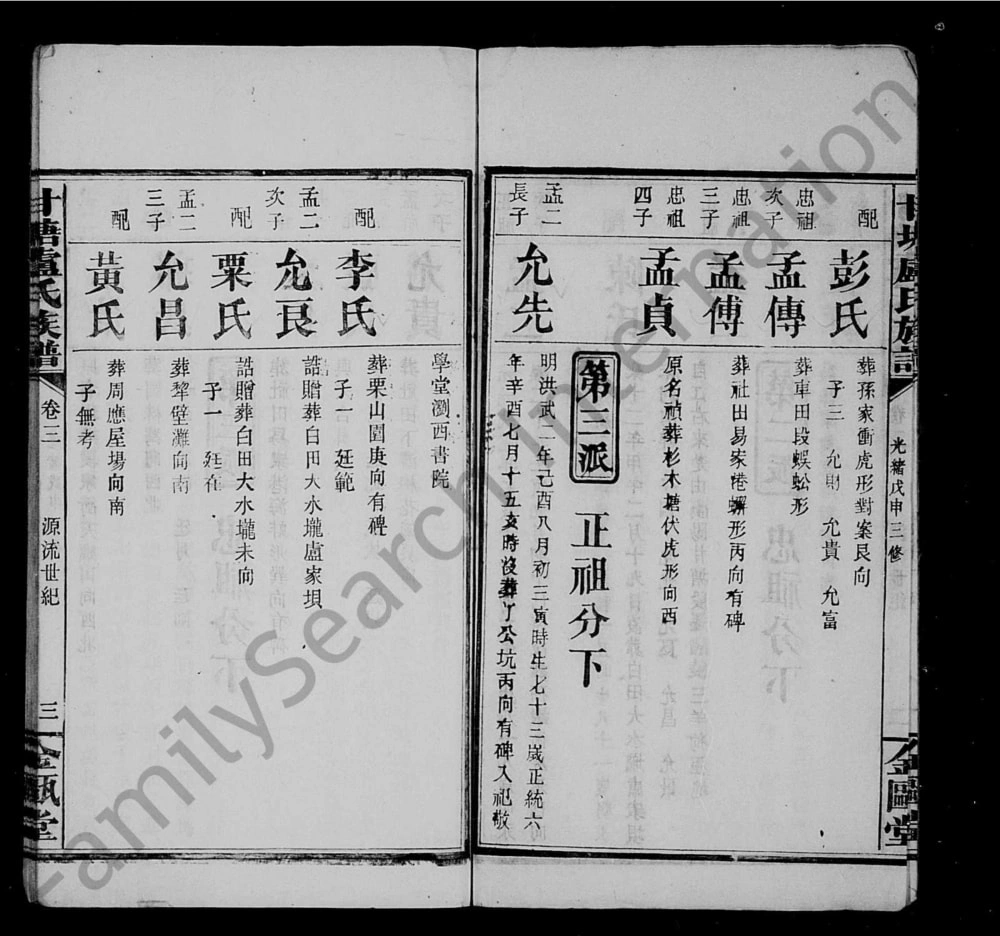 甘塘盧氏族譜
光緒戊申三修
金甌堂
配
彭氏
葬孫家衝虎形對案艮向
子三 允財 允貴 允富
忠祖
次子
孟傳
葬車田段蜈蚣形
忠祖
三子
孟傅
葬社田易家港蠏形丙向有碑
忠祖
四子
孟貞
原名禎葬杉木塘伏虎形向西
第三派 正祖分下
孟二
長子
允先
明洪武二年己酉八月初三寅時生七十三歲正統六
年辛酉七月十五亥時沒葬丫公坑丙向有碑入祀敬
學堂瀏西書院
配
李氏
葬栗山園庚向有碑
子一 廷範
孟二
次子
允良
誥贈葬白田大水壠盧家垻
配
粟氏
誥贈葬白田大水壠未向
子一 廷在
孟二
三子
允昌
葬犂壁灘向南
配
黃氏
葬周應屋場向南
子無考
甘塘盧氏族譜
卷三
源流世紀
三
金甌堂
FamilySearch International